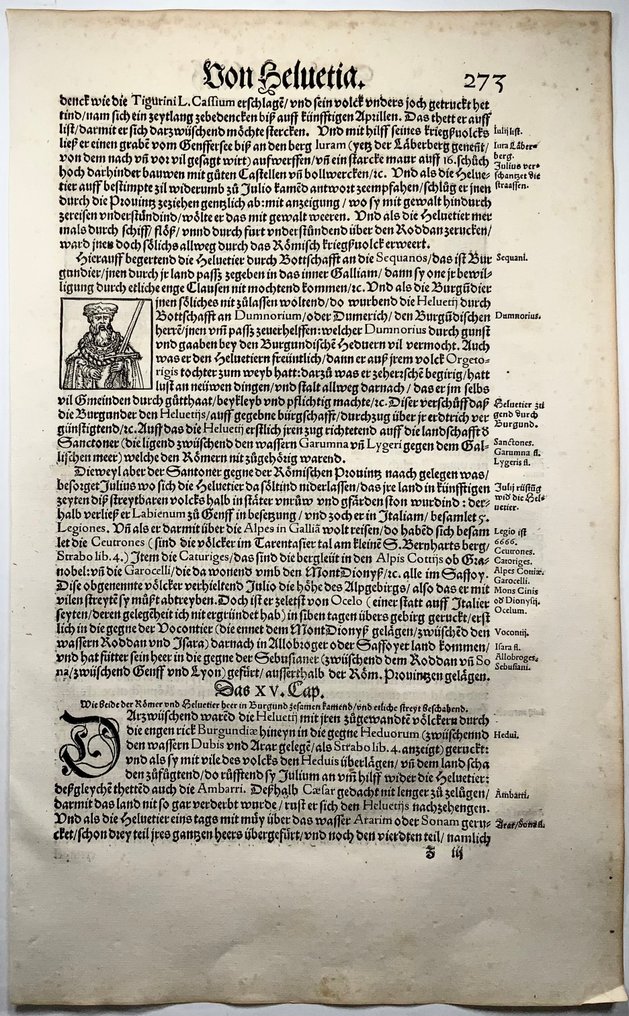 Von Heluetia. 273
denck wie die Tigurini L. Cassium erschlagē/vnd sein volck vnders joch getruckt het
tind/nam sich ein zeytlang zebedencken biß auff künfftigen Aprillen. Das thett er auff
list/darmit er sich darzwüschend möchte stercken. Vnd mit hilff seines kriegßuolcks
ließ er einen grabē vom Genffersee biß an den berg Iuram (yetz der Läberberg genēt/
von dem nach vñ vor vil gesagt wirt) aufwerffen/vñ ein starcke maur auff 16. schůch
hoch darhinder bauwen mit gůten Castellen vñ bollwercken/ꝛc. Vnd als die Helue-
tier auff bestimpte zil widerumb zů Julio kamēd antwort zeempfahen/schlůg er jnen
durch die Prouintz zeziehen gentzlich ab: mit anzeigung/wo sy mit gewalt hindurch
zereisen vnderstůndind/wölte er das mit gewalt weeren. Vnd als die Heluetier mer
mals durch schiff/flöß/vnnd durch furt vnderstůndend über den Roddan zerucken/
ward jnen doch sölichs allweg durch das Römisch kriegßuolck erweert.
Hierauff begertend die Heluetier durch Bottschafft an die Sequanos/das ist Bur
gundier/jnen durch jr land passz zegeben in das inner Galliam/dann sy one jr bewil-
ligung durch etliche enge Clausen nit mochtend kommen/ꝛc. Vnd als die Burgūdier
jnen söliches nit zůlassen woltend/do wurbend die Heluetij durch
Bottschafft an Dumnorium/oder Dumerich/den Burgūdischen
herrē/jnen vm̄ passz zeuerhelffen: welcher Dumnorius durch gunst
vnd gaaben bey den Burgundischē Heduern vil vermocht. Auch
was er den Heluetiern freüntlich/dann er auß jrem volck Orgeto-
rigis tochter zum weyb hatt: darzů was er zeherrschē begirig/hatt
lust an neüwen dingen/vnd stalt allweg darnach/das er jm selbs
vil Gmeinden durch gůtthaat/beykleyb vnd pflichtig machte/ꝛc. Diser verschůff dz
die Burgunder den Heluetijs/auff gegebne bürgschafft/durchzug über jr erdtrich ver
günstigtend/ꝛc. Auff das die Heluetij erstlich jren zug richtetend auff die landschafft d
Sanctoner (die ligend zwüschend den wassern Garumna vñ Lygeri gegen dem Gal-
lischen meer) welche den Römern nit zůgehörig warend.
Dieweyl aber der Santoner gegne der Römischen Prouintz naach gelegen was/
besorget Julius wo sich die Heluetier da söltind niderlassen/das jre land in künfftigen
zeyten diß streytbaren volcks halb in stäter vnrůw vnd gfärden ston wurdind: der-
halb verließ er Labienum zů Genff in besetzung/vnd zoch er in Italiam/besamlet 5.
Legiones. Vñ als er darmit über die Alpes in Galliā wolt reisen/do habēd sich besam
let die Ceutrones (sind die völcker im Tarentasier tal am kleinē S. Bernharts berg/
Strabo lib. 4.) Item die Caturiges/das sind die bergleüt in den Alpis Cottijs ob Gra-
nobel: vñ die Garocelli/die da wonend vmb den MontDionyß/ꝛc. alle im Saffoy.
Dise obgenente völcker verhieltend Julio die höhe des Alpgebirgs/also das er mit
vilen streytē sy můßt abtreyben. Doch ist er zeletst von Ocelo (einer statt auff Italier
seyten/deren gelegēheit ich nit ergründet hab) in siben tagen übers gebirg geruckt/erst
lich in die gegne der Vocontier (die ennet dem MontDionyß gelägen/zwüschēd den
wassern Roddan vnd Isara) darnach in Allobroger oder Saffoyer land kommen/
vnd hat fürter sein heer in die gegne der Sebusianer (zwüschend dem Roddan vñ So
na/zwüschend Genff vnd Lyon) gefürt/ausserthalb der Röm. Prouintzen gelägen.
Das XV. Cap.
Wie beide der Römer vnd Heluetier heer in Burgund zesamen kamend/vnd etliche streyt beschabend.
DArzwüschend warēd die Heluetij mit jren zůgewandtē völckern durch
die engen rick Burgundiæ hineyn in die gegne Heduorum (zwüschennd
den wassern Dubis vnd Arar gelegē/als Strabo lib. 4. anzeigt) geruckt:
vnd als sy mit vile des volcks den Heduis überlägen/vñ dem land scha
den zůfügtend/do růfftend sy Julium an vm̄ hilff wider die Heluetier:
deßgleychē thettēd auch die Ambarri. Deßhalb Cæsar gedacht nit lenger zů zelůgen/
darmit das land nit so gar verderbt wurde/rust er sich den Heluetijs nachzehengen.
Vnd als die Heluetier eins tags mit můy über das wasser Ararim oder Sonam geru-
cket/schon drey teil jres gantzen heers übergefürt/vnd noch den vierdten teil/namlich
Z iij
Iulij list.
Iura Läber-
berg.
Julius ver-
schantzet die
straassen.
Sequani.
Dumnorius.
Heluetier zü
gend durch
Burgund.
Sanctones.
Garumna fl.
Lygeris fl.
Julij rüstūg
wid die Hel-
uetier.
Legio ist
6666.
Ceutrones.
Catoriges.
Alpes Cottiæ.
Garocelli.
Mons Cinis
od Dionysij.
Ocelum.
Voconij.
Isara fl.
Allobroges.
Sebusiani.
Hedui.
Ambarri.
Arar/Sona fl.